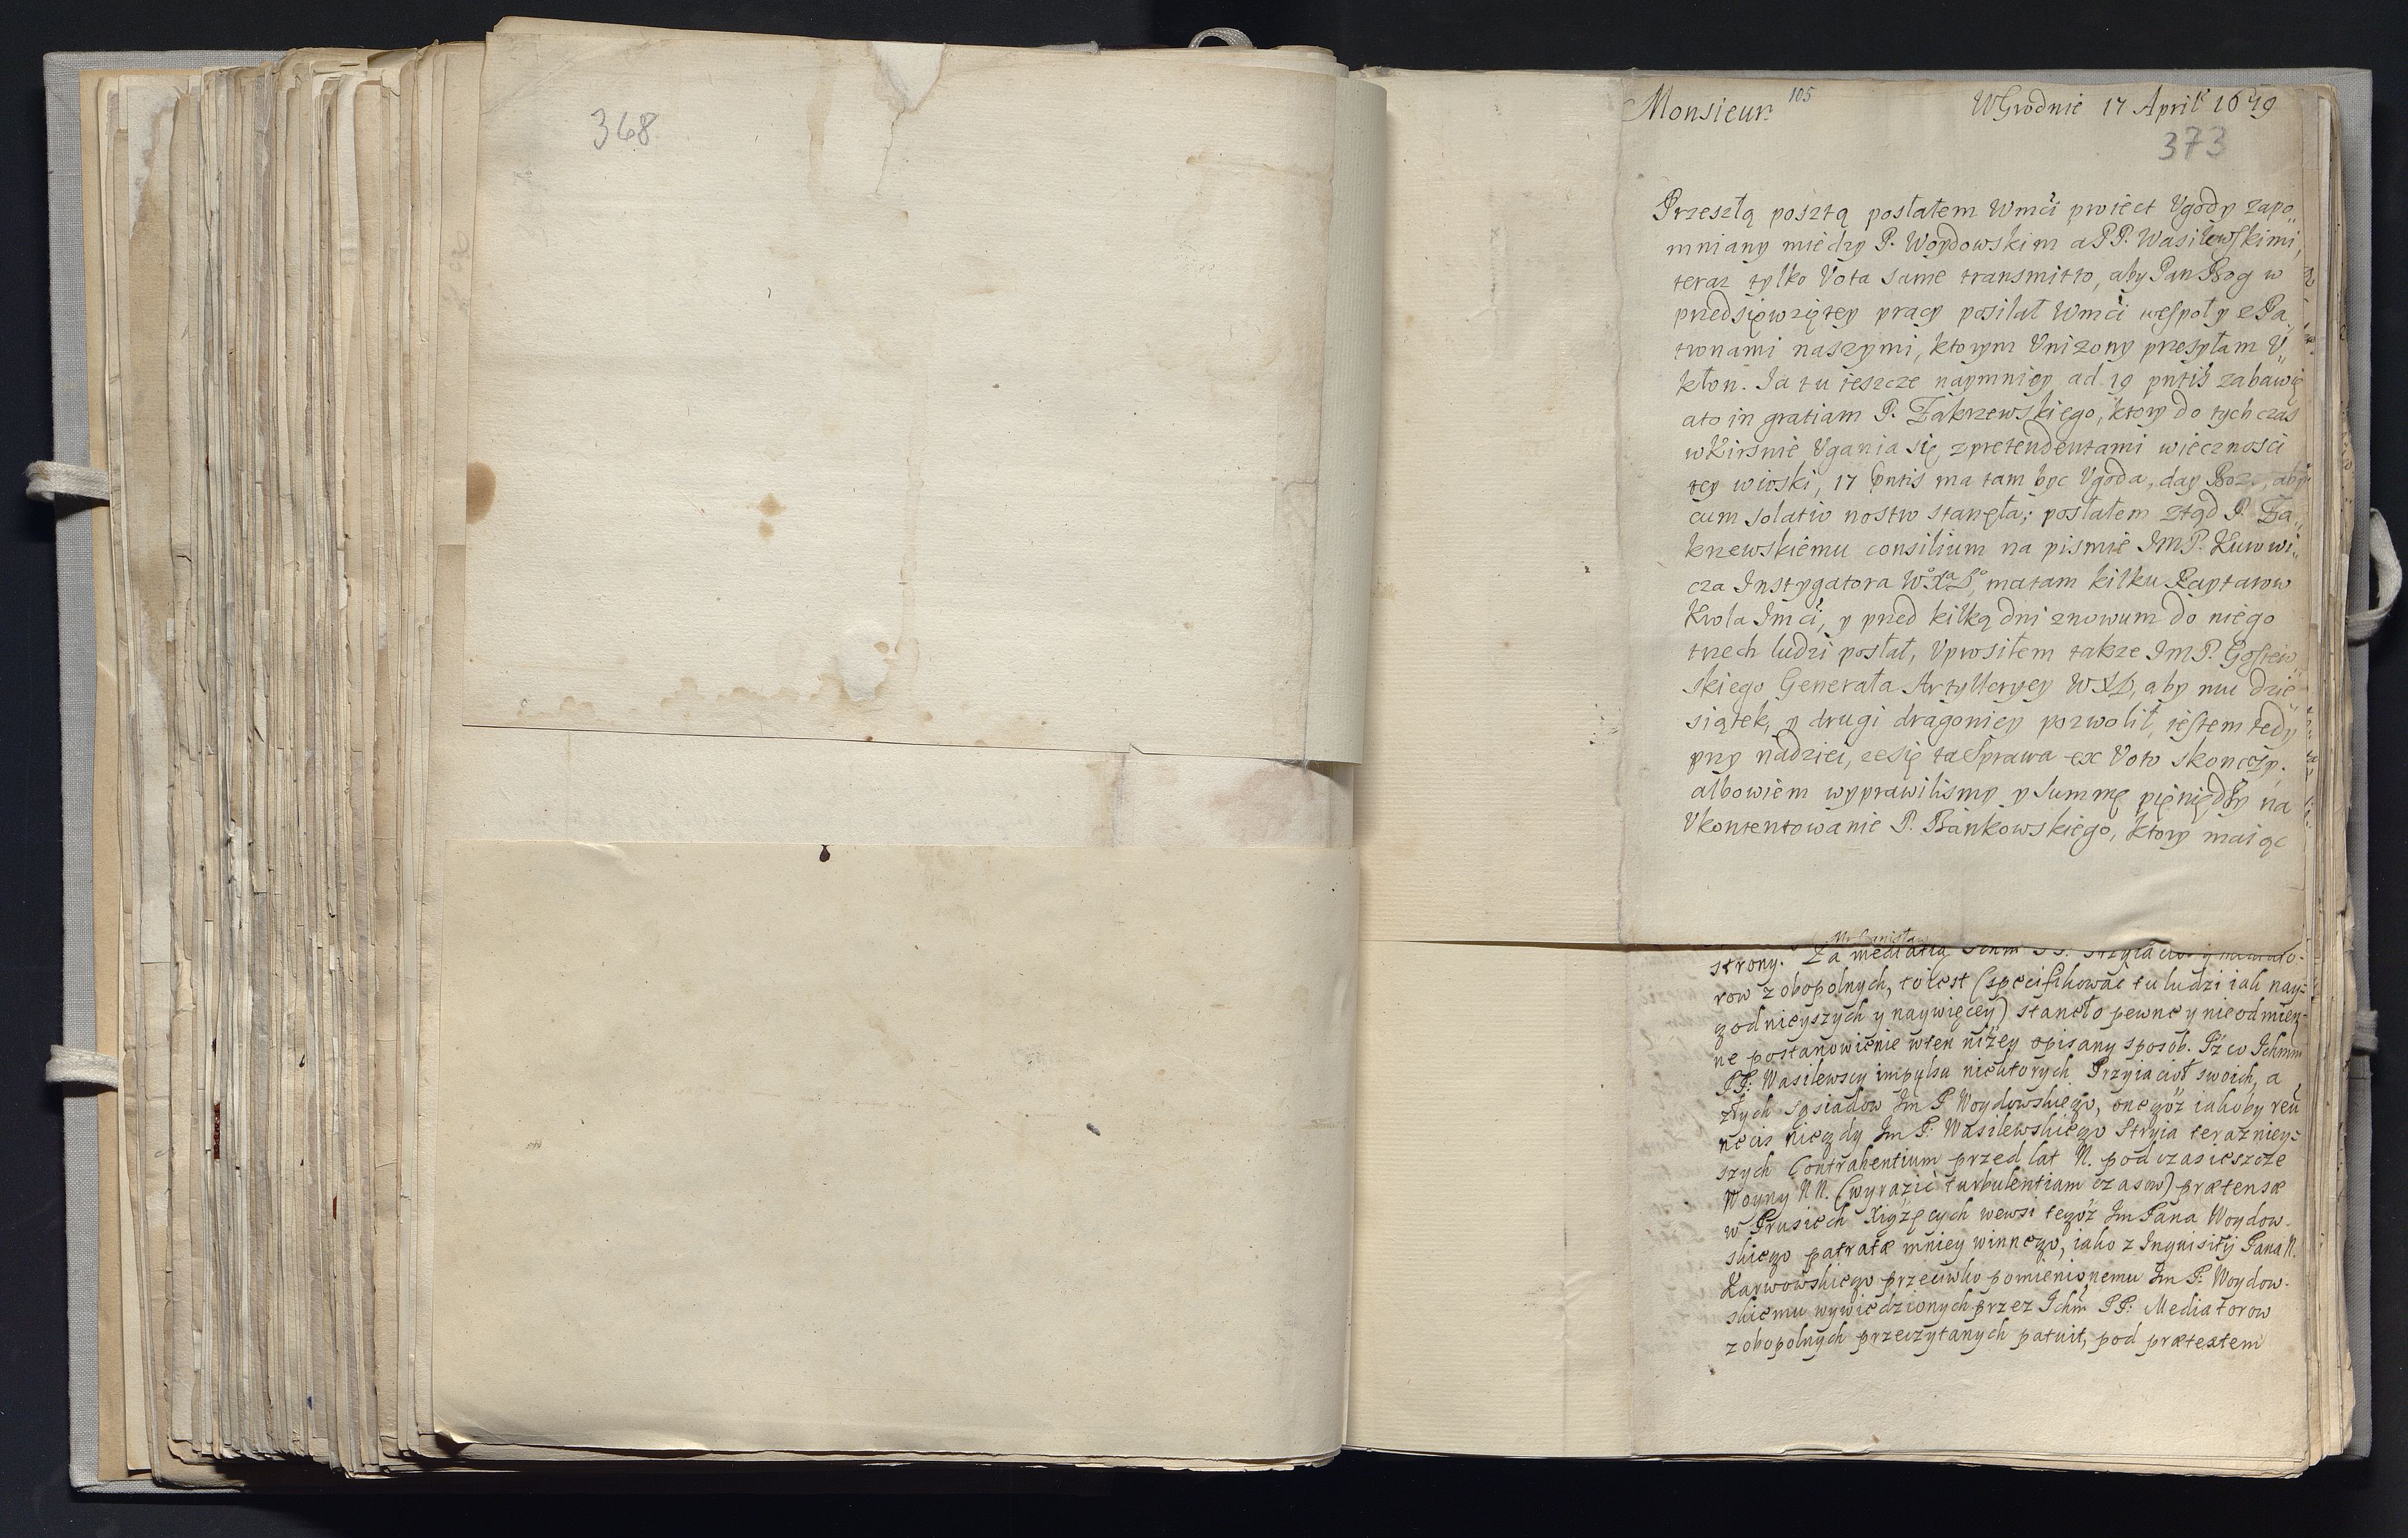 368
Monsieur. 105 WGrodnie 17 April 1679
373
Przeszłą posztą posłałem Wmći proiect Vgody zapo„
mniany między P. Woydowskim a PP. Wasilewskimi,
teraz tylko Vota same transmitto, aby Pan Bog w
przedsięwziętey pracy posilał Wmći wespoły z Pa„
tronami naszymi, ktorym Vnizony przesyłam V„
kłon. Ia tu ieszcze naymniey ad 19 pntis zabawię
ato in gratiam P. Zakrzewskiego, ktory do tych czas
wKirsnie Vgania się, zpretendentami wiecznosci
tey wioski, 17 pntis ma tam byc Vgoda, day Boze, aby
cum solatio nostro stanęła; posłałem ztąd P. Za„
krzewskiemu consilium na pismie JMP. Kurowi„
cza Instygatora matam kilku Raytarow
Krola Jmći, y przed kilką dni znowum do niego
trzech ludzi posłał, Vprosiłem takze JmP. Gosiew„
skiego Generała Artylleryey WXL, aby mu dzie„
siątek, y drugi dragoniey pozwolił, iestem tedy
przy nadziei, zesię ta Sprawa ex Voto skończy.
albowiem wyprawilismy y Summę pięniędzy na
Vkontentowanie P. Bankowskiego, ktory maiąc
strony. Za mediatią
row zobopolnych, to iest (specifikować tu ludzi iak nay=
godnieyszych y naywięcey) stanęło pewne y nieodmien=
ne postanowienie wten niżey opisany sposob. Iż co Ichmm
PP: Wasilewscy impulsu niektorych Przyiacioł swoich, a
złych sąsiadow Jm P Woydowskiego, onegoż iakoby reu
necis niegdy Jm P: Wasilewskiego Stryia terazniey=
szych Contrahentium przed lat N. podczas ieszcze
Woyny NN. (wyrazić turbulentiam czasow) prætensæ
w Prusiech Xiążęcych wewsi tegoż Jm Pana Woydow-
skiego patratæ mniey winnego, iako z Inquisitij Pana N.
Karwowskiego przeciwko pomienionemu Jm P: Woydow-
skiemu wywiedzionych przez Ichm PP: Mediatorow
zobopolnych przeczytanych patuit, pod prætextem